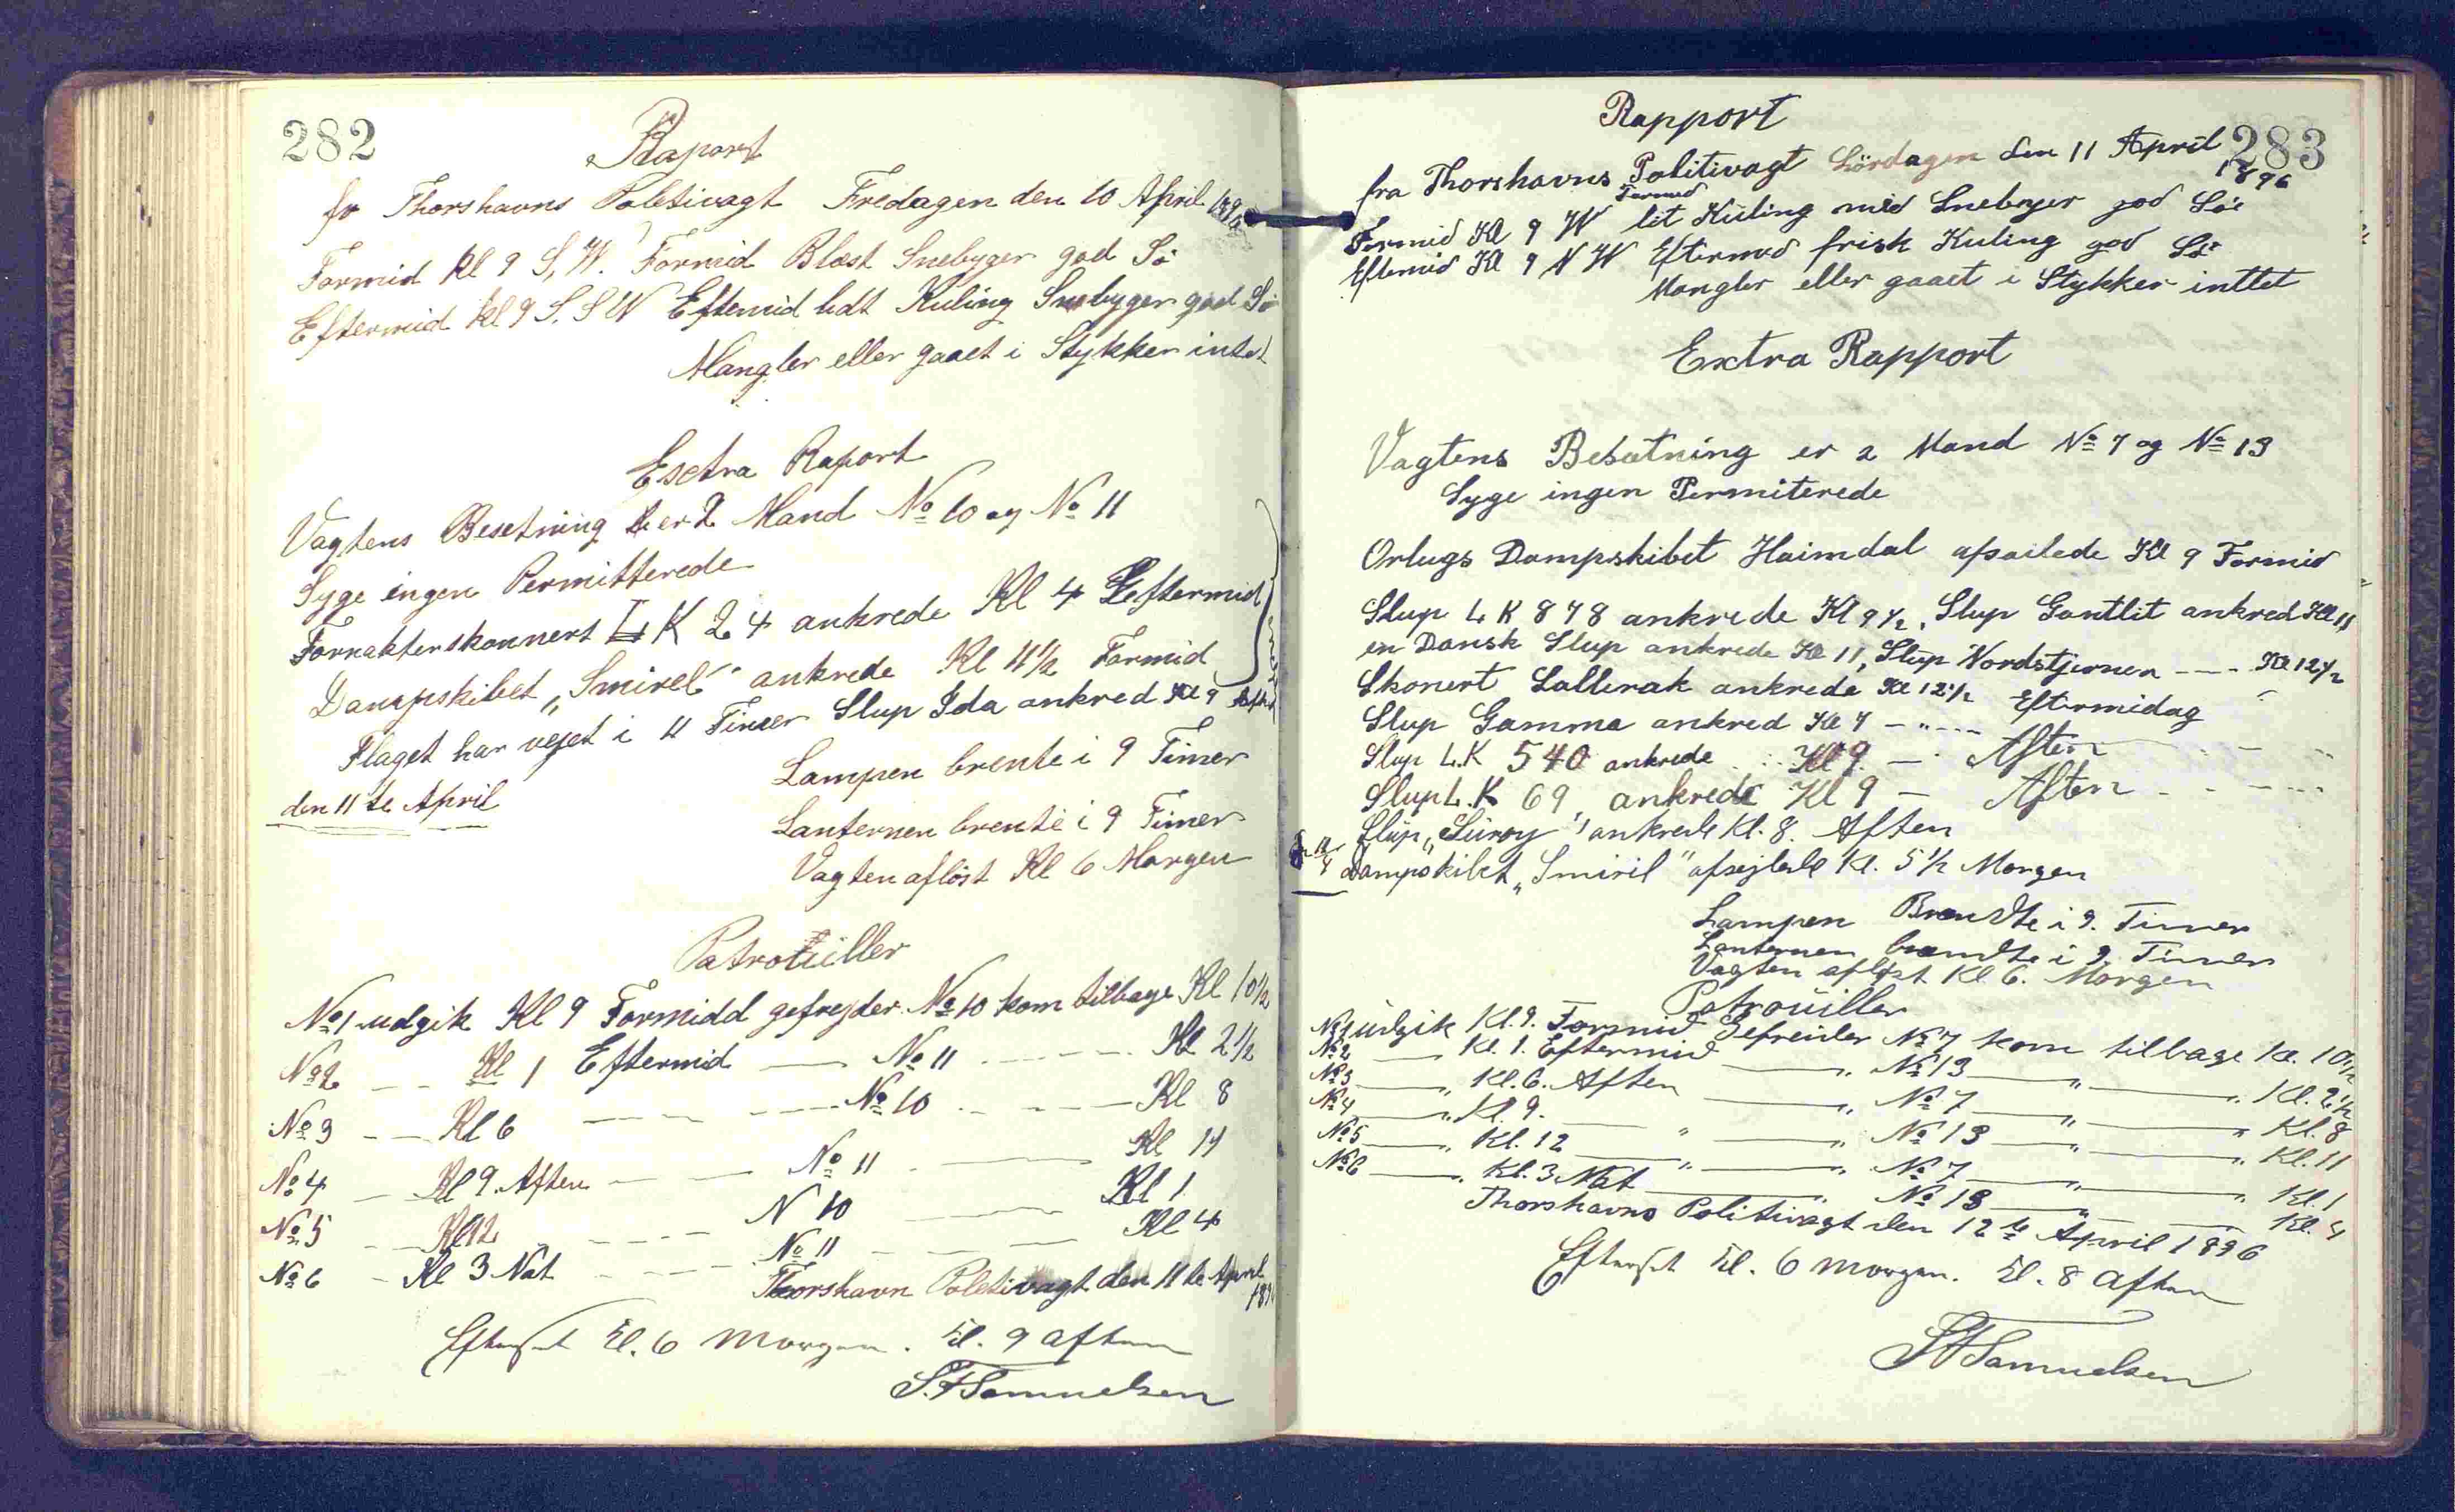 282
Raport
fr Thorshavns Poletivagt Fredagen den 10 April 189
Formid Kl 9 S, W. Formid Blæst Snebyger god Sö
Eftermid Kl 9 S. S W Eftemid lidt Kuling Snebyger god Sö
Mangler eller gaaet i Stykker intet
Esctra Raport
Vagtens Besetning er 2 Mand No 10 og No 11
Syge ingen Permitterede
Forrakterskonnert L K 24 ankrede Kl 4 Eftermid
Dampskibet „Smirel" ankrede Kl 11½ Formid
Flaget har vejet i 11 Timer Slup Ida ankred Kl 9
den 11 te April
Lampen brente i 9 Timer
Lanternen brente i 9 Timer
Vagten aflöst Kl 6 Morgen
Patrouiller
No 1 udgik Kl 9 Formidd gefrejder No 10 kom tilbage Kl 10½
No 2 — — Kl 1 Eftermid — No 11 — — — Kl 2½
No 3 — — Kl 6 — — — No 10 — — Kl 8
No 4 — Kl 9. Aften — — No 11 — — Kl 11
No 5 — — Kl 12 — — — N 10 — Kl 1
No 6 — Kl 3 Nat — — — No 11 — — Kl 4
Thorshavn Poletivagt den 11 te April 189
Efterset Kl. 6 morgen. Kl. 9 aften
S. F Samuelsen
283
Rapport
fra Thorshavns Politivagt Lördagen den 11 April 1896
Formid Kl 9 W Formid lit Kuling med Snebyer god Sö
Eftemid Kl 9 N W Eftermed frisk Kuling god Sö
Mangler eller gaaet i Stykker inttet
Extra Rapport
Vagtens Besætning er 2 Mand No 7 og No 13
Syge ingen Permiterede
Orlugs Dampskibet Haimdal afsailede Kl 9 Formid
Slup L K 878 ankrede Kl 9½, Slup Gontlit ankred Kl 11
en Dansk Slup ankrede Kl 11, Slup Nordstjernen — — Kl 12½
Skonert Lallerak ankrede Kl 12½ Eftermidag
Slup Gamma ankred Kl 7 — „ — —
Slup L.K 540 ankrede Kl 9. — Aften
Slup L.K 69 ankrede Kl 9 — Aften
Slup „Suroy" ankrede Kl. 8. Aften
Dampskibet „Smiril" afsejlede Kl. 5½ Morgen
Lampen Brændte i 9. Timer
Lanternen brændte i 9. Timer
Vagten afløst Kl 6. Morgen
Patrouiller
No 1 udgik Kl. 9. Formid Gefreider No 7 kom tilbage Kl. 10½
No 2 — „ Kl. 1. Eftermid — „ No 13 — „ — „ Kl. 2½
No 3 — „ Kl. 6. Aften — „ No 7 — „ — „ Kl. 8
No 4 — „ Kl. 9. — „ — „ No 13 — „ — „ Kl. 11
No 5 — „ Kl. 12 — „ — „ No 7 — „ — „ Kl. 1
No 6 — „ Kl. 3 Nat — „ No 13 — „ — „ Kl. 4
Thorshavns Politivagt den 12 te April 1896
Efterset Kl. 6 morgen. Kl. 8 aften
S F Samuelsen